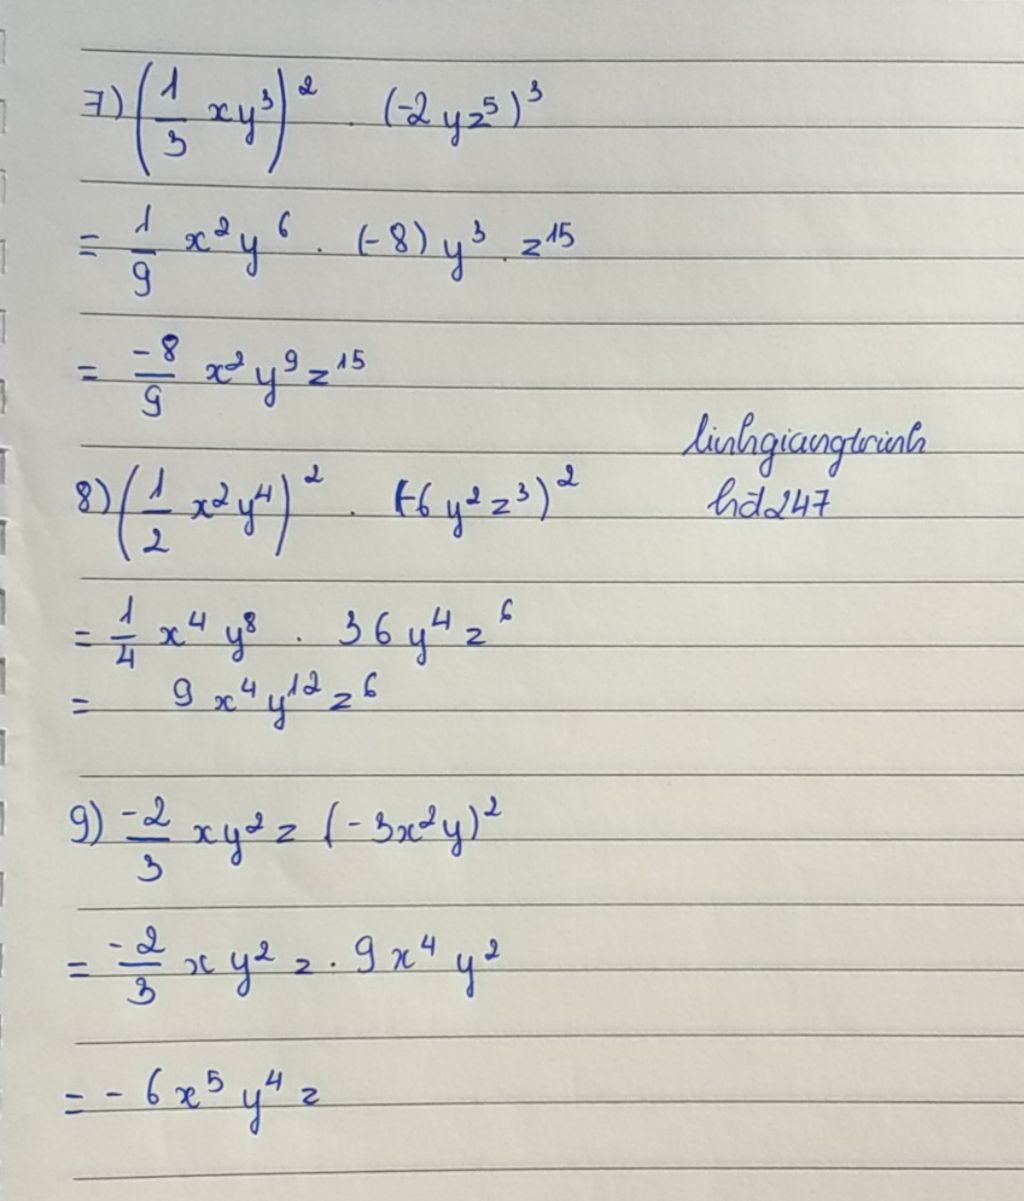 7) (1/3 xy³)² . (-2yz⁵)³
= 1/9 x²y⁶ . (-8) y³ . z¹⁵
= -8/9 x²y⁹z¹⁵
linhgiangtrinh
hd247
8) (1/2 x²y⁴)² . (-6y²z³)²
= 1/4 x⁴y⁸ . 36y⁴z⁶
= 9x⁴y¹²z⁶
9) -2/3 xy²z (-3x²y)²
= -2/3 xy²z . 9x⁴y²
= -6x⁵y⁴z